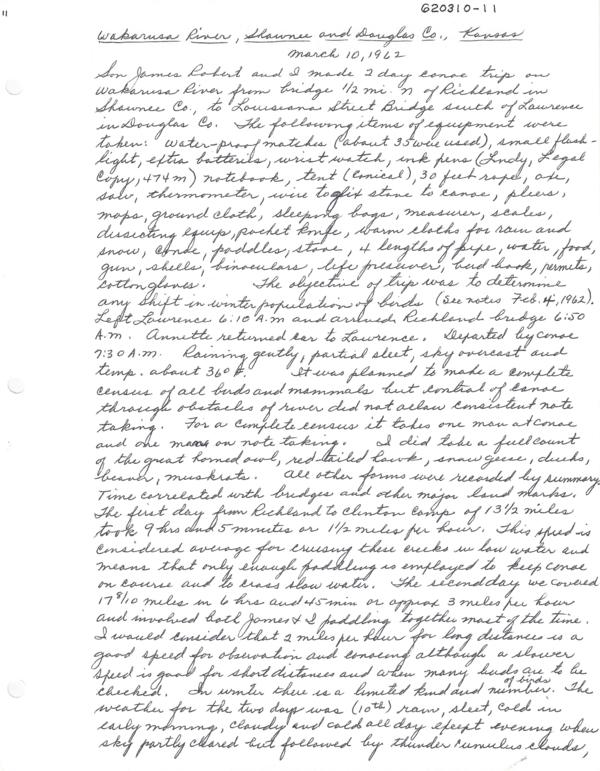 620310-11
11
Wakarusa River, Shawnee and Douglas Co., Kansas
March 10, 1962
Son James Robert and I made 2 day canoe trip on
Wakarusa River from bridge 1/2 mi. N of Richland in
Shawnee Co., to Louisiana Street Bridge south of Lawrence
in Douglas Co. The following items of equipment were
taken: Water-proof matches (about 35 were used), small flash-
light, extra batteries, wrist watch, ink pens (Lindy, Legal
Copy, 474m) notebook, tent (Conical), 30 feet rope, axe,
saw, thermometer, wire to fix stove to canoe, pliers,
maps, ground cloth, sleeping bags, measurer, scales,
dissecting equip, pocket knife, warm cloths for rain and
snow, canoe, paddles, stove, 4 lengths of pipe, water, food,
gun, shells, binoculars, life preserver, bird book, permits,
cotton gloves. The objective of trip was to determine
any shift in winter population of birds (See notes Feb. 4, 1962).
Left Lawrence 6:10 A.M and arrived Richland bridge 6:50
A.M. Annette returned car to Lawrence. Departed by canoe
7:30 A.M. Raining gently, partial sleet, sky overcast and
temp. about 36° F. It was planned to made a complete
census of all birds and mammals but control of canoe
through obstacles of river did not allow consistent note
taking. For a complete census it takes one man at canoe
and one man on note taking. I did take a full count
of the great horned owl, red-tailed hawk, snow geese, ducks,
beaver, muskrats. All other forms were recorded by summary.
Time correlated with bridges and other major land marks.
The first day from Richland to Clinton camp of 13 1/2 miles
took 9 hrs and 5 minutes or 1 1/2 miles per hour. This speed is
considered average for cruising these creeks in low water and
means that only enough paddling is employed to keep canoe
on course and to cross slow water. The second day we covered
17 8/10 miles in 6 hrs and 45 min or approx 3 miles per hour
and involved both James & I paddling together most of the time.
I would consider that 2 miles per hour for long distances is a
good speed for observation and canoeing although a slower
speed is good for short distances and when many birds are to be
checked. In winter there is a limited kind and number of birds. The
weather for the two days was (10th) rain, sleet, cold in
early morning, cloudy and cold all day except evening when
sky partly cleared but followed by thunder cumulus clouds,